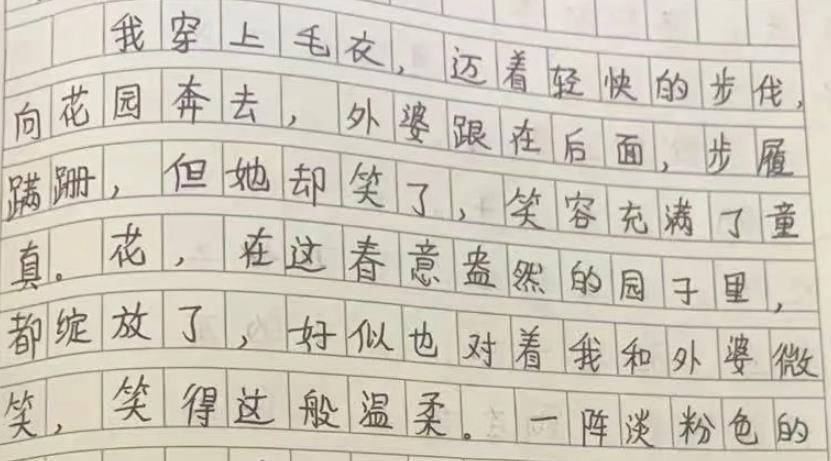 我穿上毛衣，迈着轻快的步伐，
向花园奔去，外婆跟在后面，步履
蹒跚，但她却笑了，笑容充满了童
真。花，在这春意盎然的园子里，
都绽放了，好似也对着我和外婆微
笑，笑得这般温柔。一阵淡粉色的